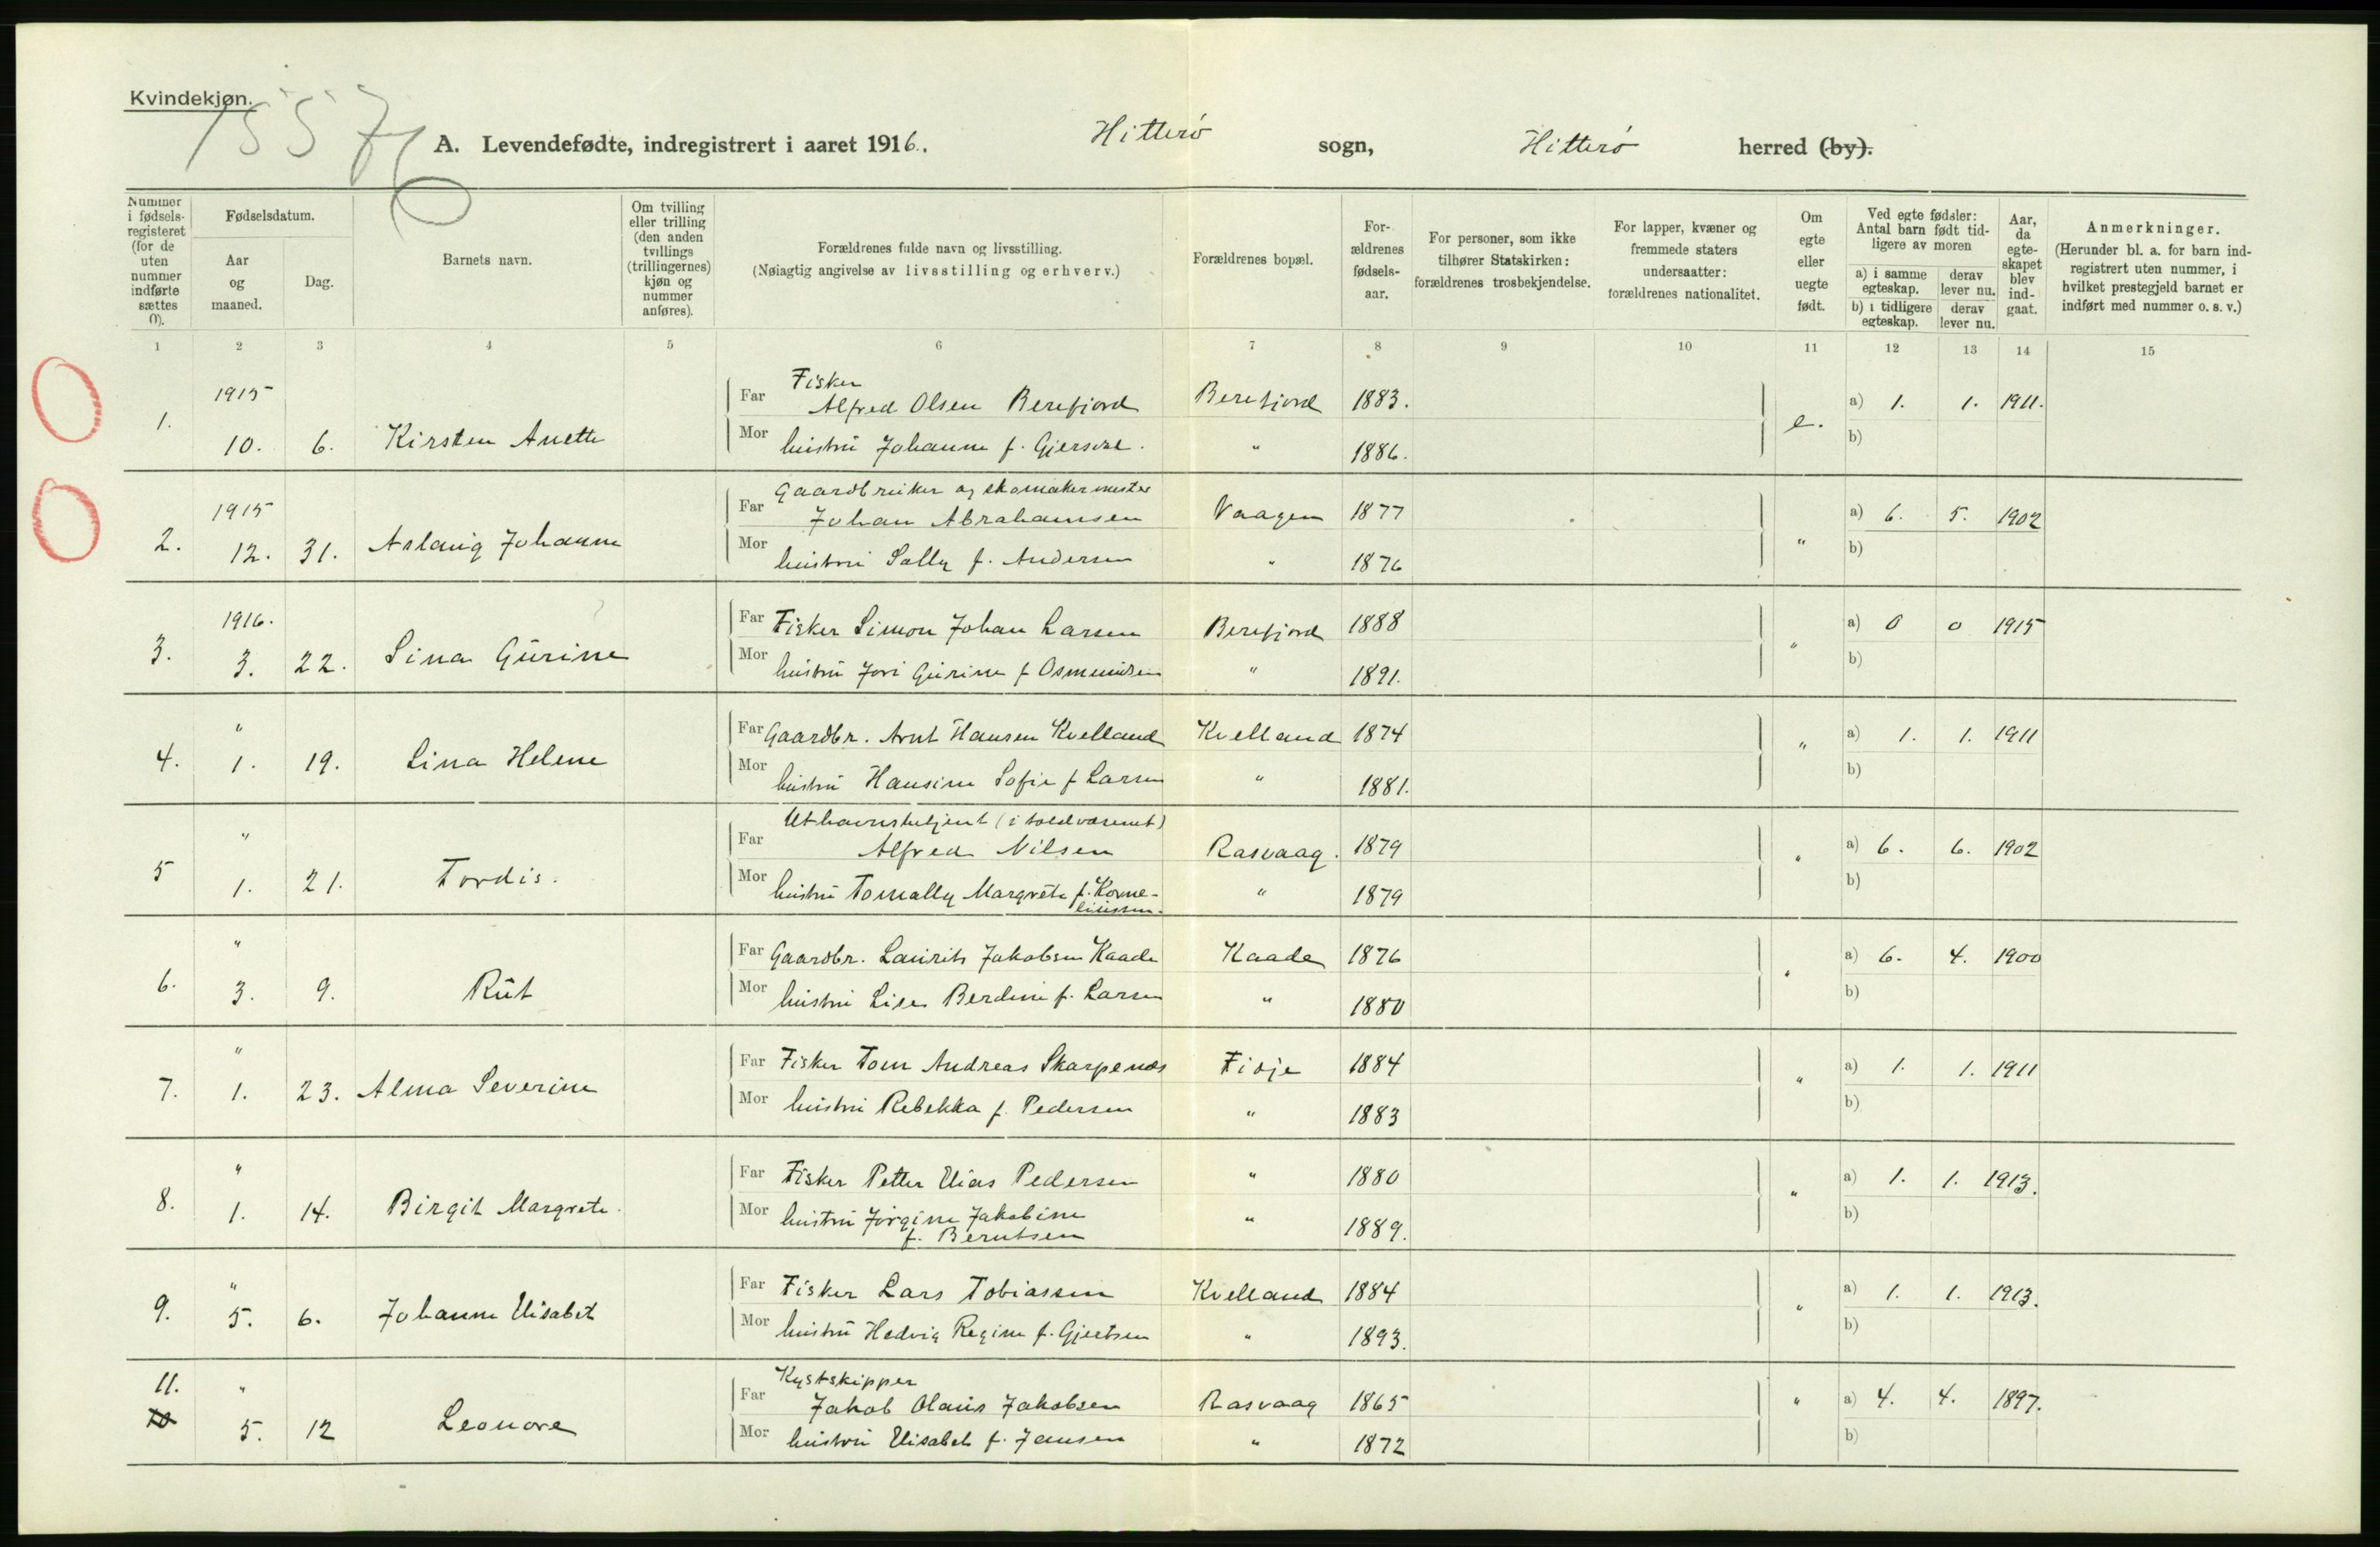 Kvindekjøn.
1557
A. Levendefødte, indregistrert i aaret 1916. Hitterö sogn, Hitterö herred (by).
Nummer i fødsels-registeret (for de uten nummer indførte sættes 0).
Fødselsdatum.
Aar og maaned.
Dag.
Barnets navn.
Om tvilling eller trilling (den anden tvillings (trillingernes) kjøn og nummer anføres).
Forældrenes fulde navn og livsstilling.
(Nøiagtig angivelse av livsstilling og erhverv.)
Forældrenes bopæl.
For-ældrenes fødsels-aar.
For personer, som ikke tilhører Statskirken: forældrenes trosbekjendelse.
For lapper, kvæner og fremmede staters undersaatter: forældrenes nationalitet.
Om egte eller uegte født.
Ved egte fødsler: Antal barn født tid-ligere av moren
a) i samme egteskap.
derav lever nu.
b) i tidligere egteskap.
derav lever nu.
Aar, da egte-skapet blev ind-gaat.
Anmerkninger.
(Herunder bl. a. for barn ind-registrert uten nummer, i hvilket prestegjeld barnet er indført med nummer o. s. v.)
1 2 3 4 5 6 7 8 9 10 11 12 13 14 15
1915 Fisker
1. Far Alfred Olsen Berefjord Berefjord 1883. e. a) 1. 1. 1911.
10. 6. Kirsten Anette Mor hustru Johanne f. Gjersdal. " 1886. b)
1915 Gaardbruker og skomakermester
2. Far Johan Abrahamsen Vaagen 1877 " a) 6. 5. 1902
12. 31. Aslaug Johanne Mor hustru Sally f. Andersen " 1876 b)
1916. Far Fisker Simon Johan Larsen Berefjord 1888 " a) 0 0 1915
3. 3. 22. Sina Gurine Mor hustru Jori Gurine f Osmundsen " 1891. b)
" Far Gaardbr. Arnt Hansen Kvelland Kvelland 1874 " a) 1. 1. 1911
4. 1. 19. Lina Helene Mor hustru Hansine Sofie f Larsen " 1881. b)
" Uthavnsbetjent (i toldvæsenet)
Far Alfred Nilsen Rasvaag. 1879 " a) 6. 6. 1902
5 1. 21. Tordis. Mor hustru Tomally Margrete f. Korne-liussen. " 1879 b)
" Far Gaardbr. Laurits Jakobsen Kaade Kaade 1876 " a) 6. 4. 1900
6. 3. 9. Rut Mor hustru Lise Berdine f. Larsen " 1880 b)
" Far Fisker Tom Andreas Skarpenæs Fidje 1884 " a) 1. 1. 1911
7. 1. 23. Alma Severine Mor hustru Rebekka f. Pedersen " 1883 b)
" Far Fisker Petter Elias Pedersen " 1880 " a) 1. 1. 1913.
8. 1. 14. Birgit Margrete. Mor hustru Jörgine Jakobine " 1889. b)
f. Berntsen
" Far Fisker Lars Tobiassen Kvelland 1884 " a) 1. 1. 1913.
9. 5. 6. Johanne Elisabet Mor hustru Hedvig Regine f. Gjertsen " 1893. b)
11. " Kystskipper
10 Far Jakob Olaus Jakobsen Rasvaag 1865 " a) 4. 4. 1897.
5. 12 Leonore Mor hustru Elisabet f. Jansen " 1872 b)